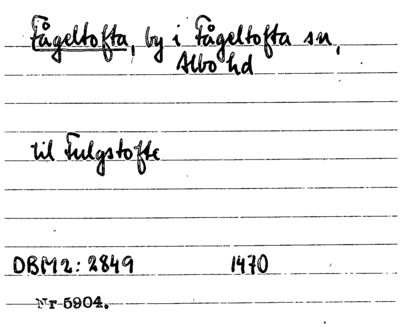 Fågeltofta, by i Fågeltofta sn,
Albo hd
til Fulgstofte
DBM2: 2849 1470
Nr 5904.